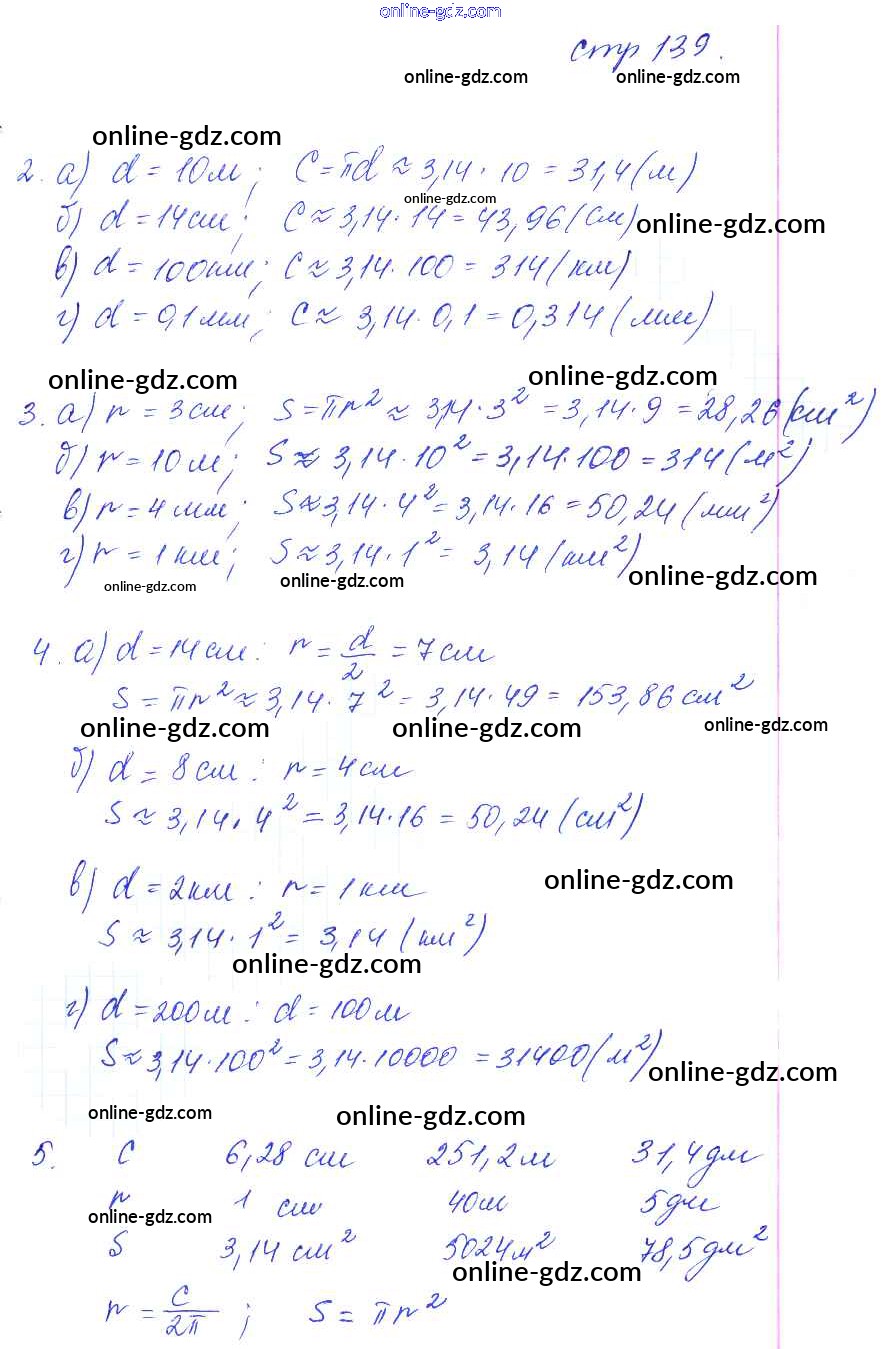 online-gdz.com
стр 139.
online-gdz.com online-gdz.com
online-gdz.com
2. а) d = 10м; C = πd ≈ 3,14 · 10 = 31,4 (м)
online-gdz.com
б) d = 14см; C ≈ 3,14 · 14 = 43,96 (см) online-gdz.com
в) d = 100км; C ≈ 3,14 · 100 = 314 (км)
г) d = 0,1 мм; C ≈ 3,14 · 0,1 = 0,314 (мм)
online-gdz.com online-gdz.com
3. а) r = 3см; S = πr² ≈ 3,14 · 3² = 3,14 · 9 = 28,26 (см²)
б) r = 10м; S ≈ 3,14 · 10² = 3,14 · 100 = 314 (м²)
в) r = 4 мм; S ≈ 3,14 · 4² = 3,14 · 16 = 50,24 (мм²)
г) r = 1 км; S ≈ 3,14 · 1² = 3,14 (км²)
online-gdz.com online-gdz.com online-gdz.com
4. а) d = 14см : r = d/2 = 7 см
S = πr² ≈ 3,14 · 7² = 3,14 · 49 = 153,86 см²
online-gdz.com online-gdz.com online-gdz.com
б) d = 8см : r = 4см
S ≈ 3,14 · 4² = 3,14 · 16 = 50,24 (см²)
в) d = 2км : r = 1 км
online-gdz.com
S ≈ 3,14 · 1² = 3,14 (км²)
online-gdz.com
г) d = 200м : d = 100м
S ≈ 3,14 · 100² = 3,14 · 10000 = 31400 (м²)
online-gdz.com
online-gdz.com online-gdz.com
5. C 6,28 см 251,2м 31,4дм
r 1 см 40м 5дм
online-gdz.com
S 3,14 см² 5024м² 78,5дм²
online-gdz.com
r = C/2π ; S = πr²